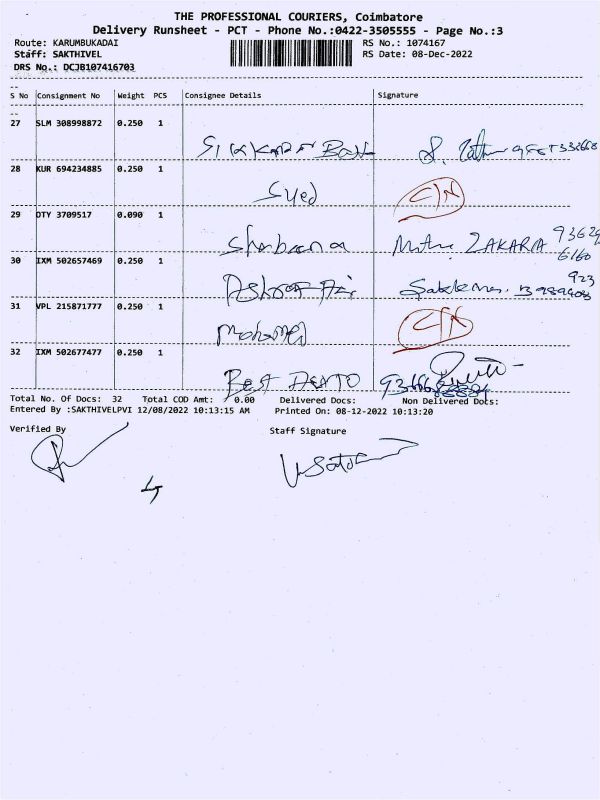 THE PROFESSIONAL COURIERS, Coimbatore
Delivery Runsheet - PCT - Phone No.:0422-3505555 - Page No.:3
Route: KARUMBUKADAI RS No.: 1074167
Staff: SAKTHIVEL RS Date: 08-Dec-2022
DRS No.: DCJB107416703
S No Consignment No Weight PCS Consignee Details Signature
27 SLM 308998872 0.250 1
28 KUR 694234885 0.250 1
Syed C/N
29 OTY 3709517 0.090 1
Shabaana ZAKARIA
30 IXM 502657469 0.250 1
31 VPL 215871777 0.250 1
Mohamed C/N
32 IXM 502677477 0.250 1
BEST
Total No. Of Docs: 32 Total COD Amt: 0.00 Delivered Docs: Non Delivered Docs:
Entered By :SAKTHIVELPVI 12/08/2022 10:13:15 AM Printed On: 08-12-2022 10:13:20
Verified By Staff Signature